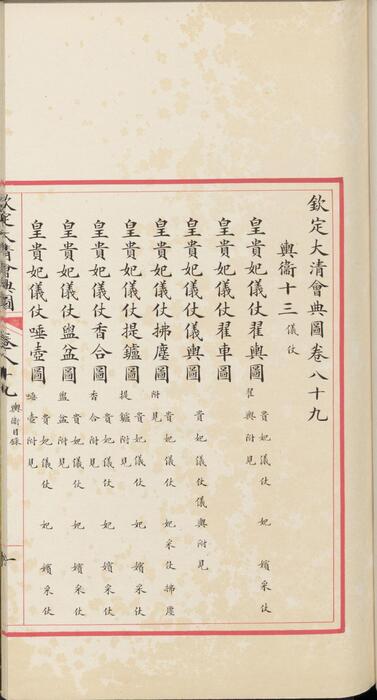 欽定大清會典圖卷八十九
輿衞十三 儀仗
皇貴妃儀仗翟輿圖 貴妃儀仗 妃 嬪采仗
翟輿附見
皇貴妃儀仗翟車圖
皇貴妃儀仗儀輿圖 貴妃儀仗儀輿附見
皇貴妃儀仗拂塵圖 貴妃儀仗 妃采仗拂塵
附見
皇貴妃儀仗提鑪圖 貴妃儀仗 妃 嬪采仗
提鑪附見
皇貴妃儀仗香合圖 貴妃儀仗 妃 嬪采仗
香合附見
皇貴妃儀仗盥盆圖 貴妃儀仗 妃 嬪采仗
盥盆附見
皇貴妃儀仗唾壺圖 貴妃儀仗 妃 嬪采仗
唾壺附見
欽定大清會典圖 卷八十九 輿衞目錄 一